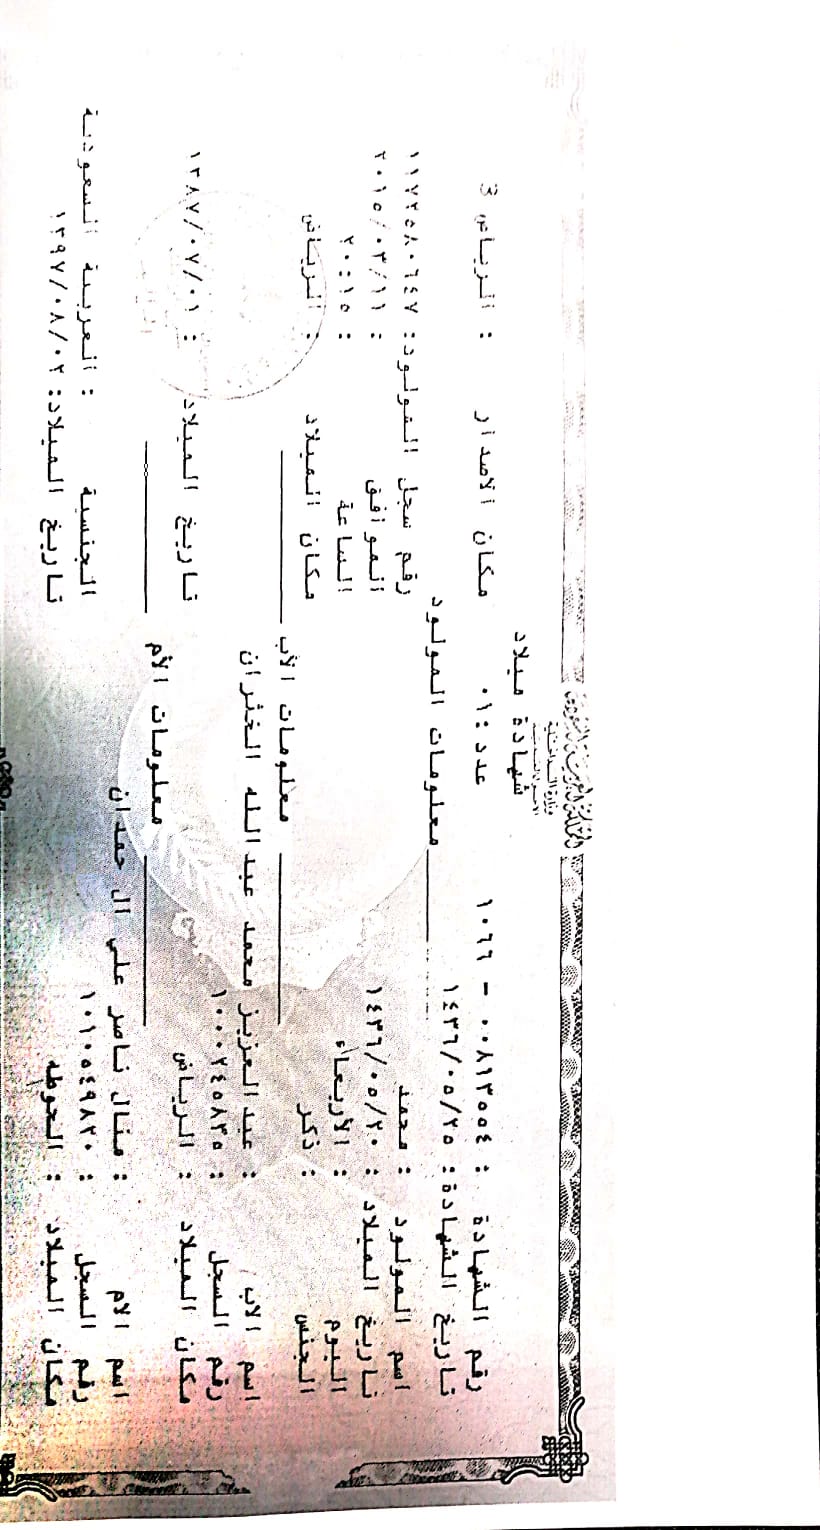 المملكة العربية السعودية
وزارة الداخلية
شهادة ميلاد
رقم الشهادة : ٠٠٨١٣٥٥٤ - ١٠٦٦ عدد : ٠١ مكان الاصدار : الرياض 3
تاريخ الشهادة : ١٤٣٦/٠٥/٢٥
معلومات المولود
اسم المولود : محمد رقم سجل المولود : ١١٧٢٥٨٠٦٤٧
تاريخ الميلاد : ١٤٣٦/٠٥/٢٠ الموافق : ٢٠١٥/٠٣/١١
اليوم : الأربعاء الساعة : ٢٠:١٥
الجنس : ذكر مكان الميلاد : الرياض
معلومات الأب
اسم الاب : عبدالعزيز محمد عبدالله الخثران
رقم السجل : ١٠٠٠٢٤٥٨٣٥
مكان الميلاد : الرياض تاريخ الميلاد : ١٣٨٧/٠٧/٠١
معلومات الأم
اسم الام : منال ناصر علي ال حمدان
رقم السجل : ١٠١٠٥٤٩٨٢٠ الجنسية : العربية السعودية
مكان الميلاد : الحوطه تاريخ الميلاد : ١٣٩٧/٠٨/٠٢